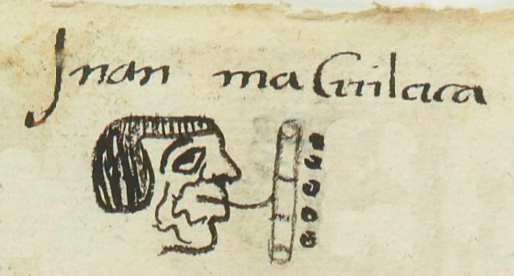 Juan ma Cuilaca